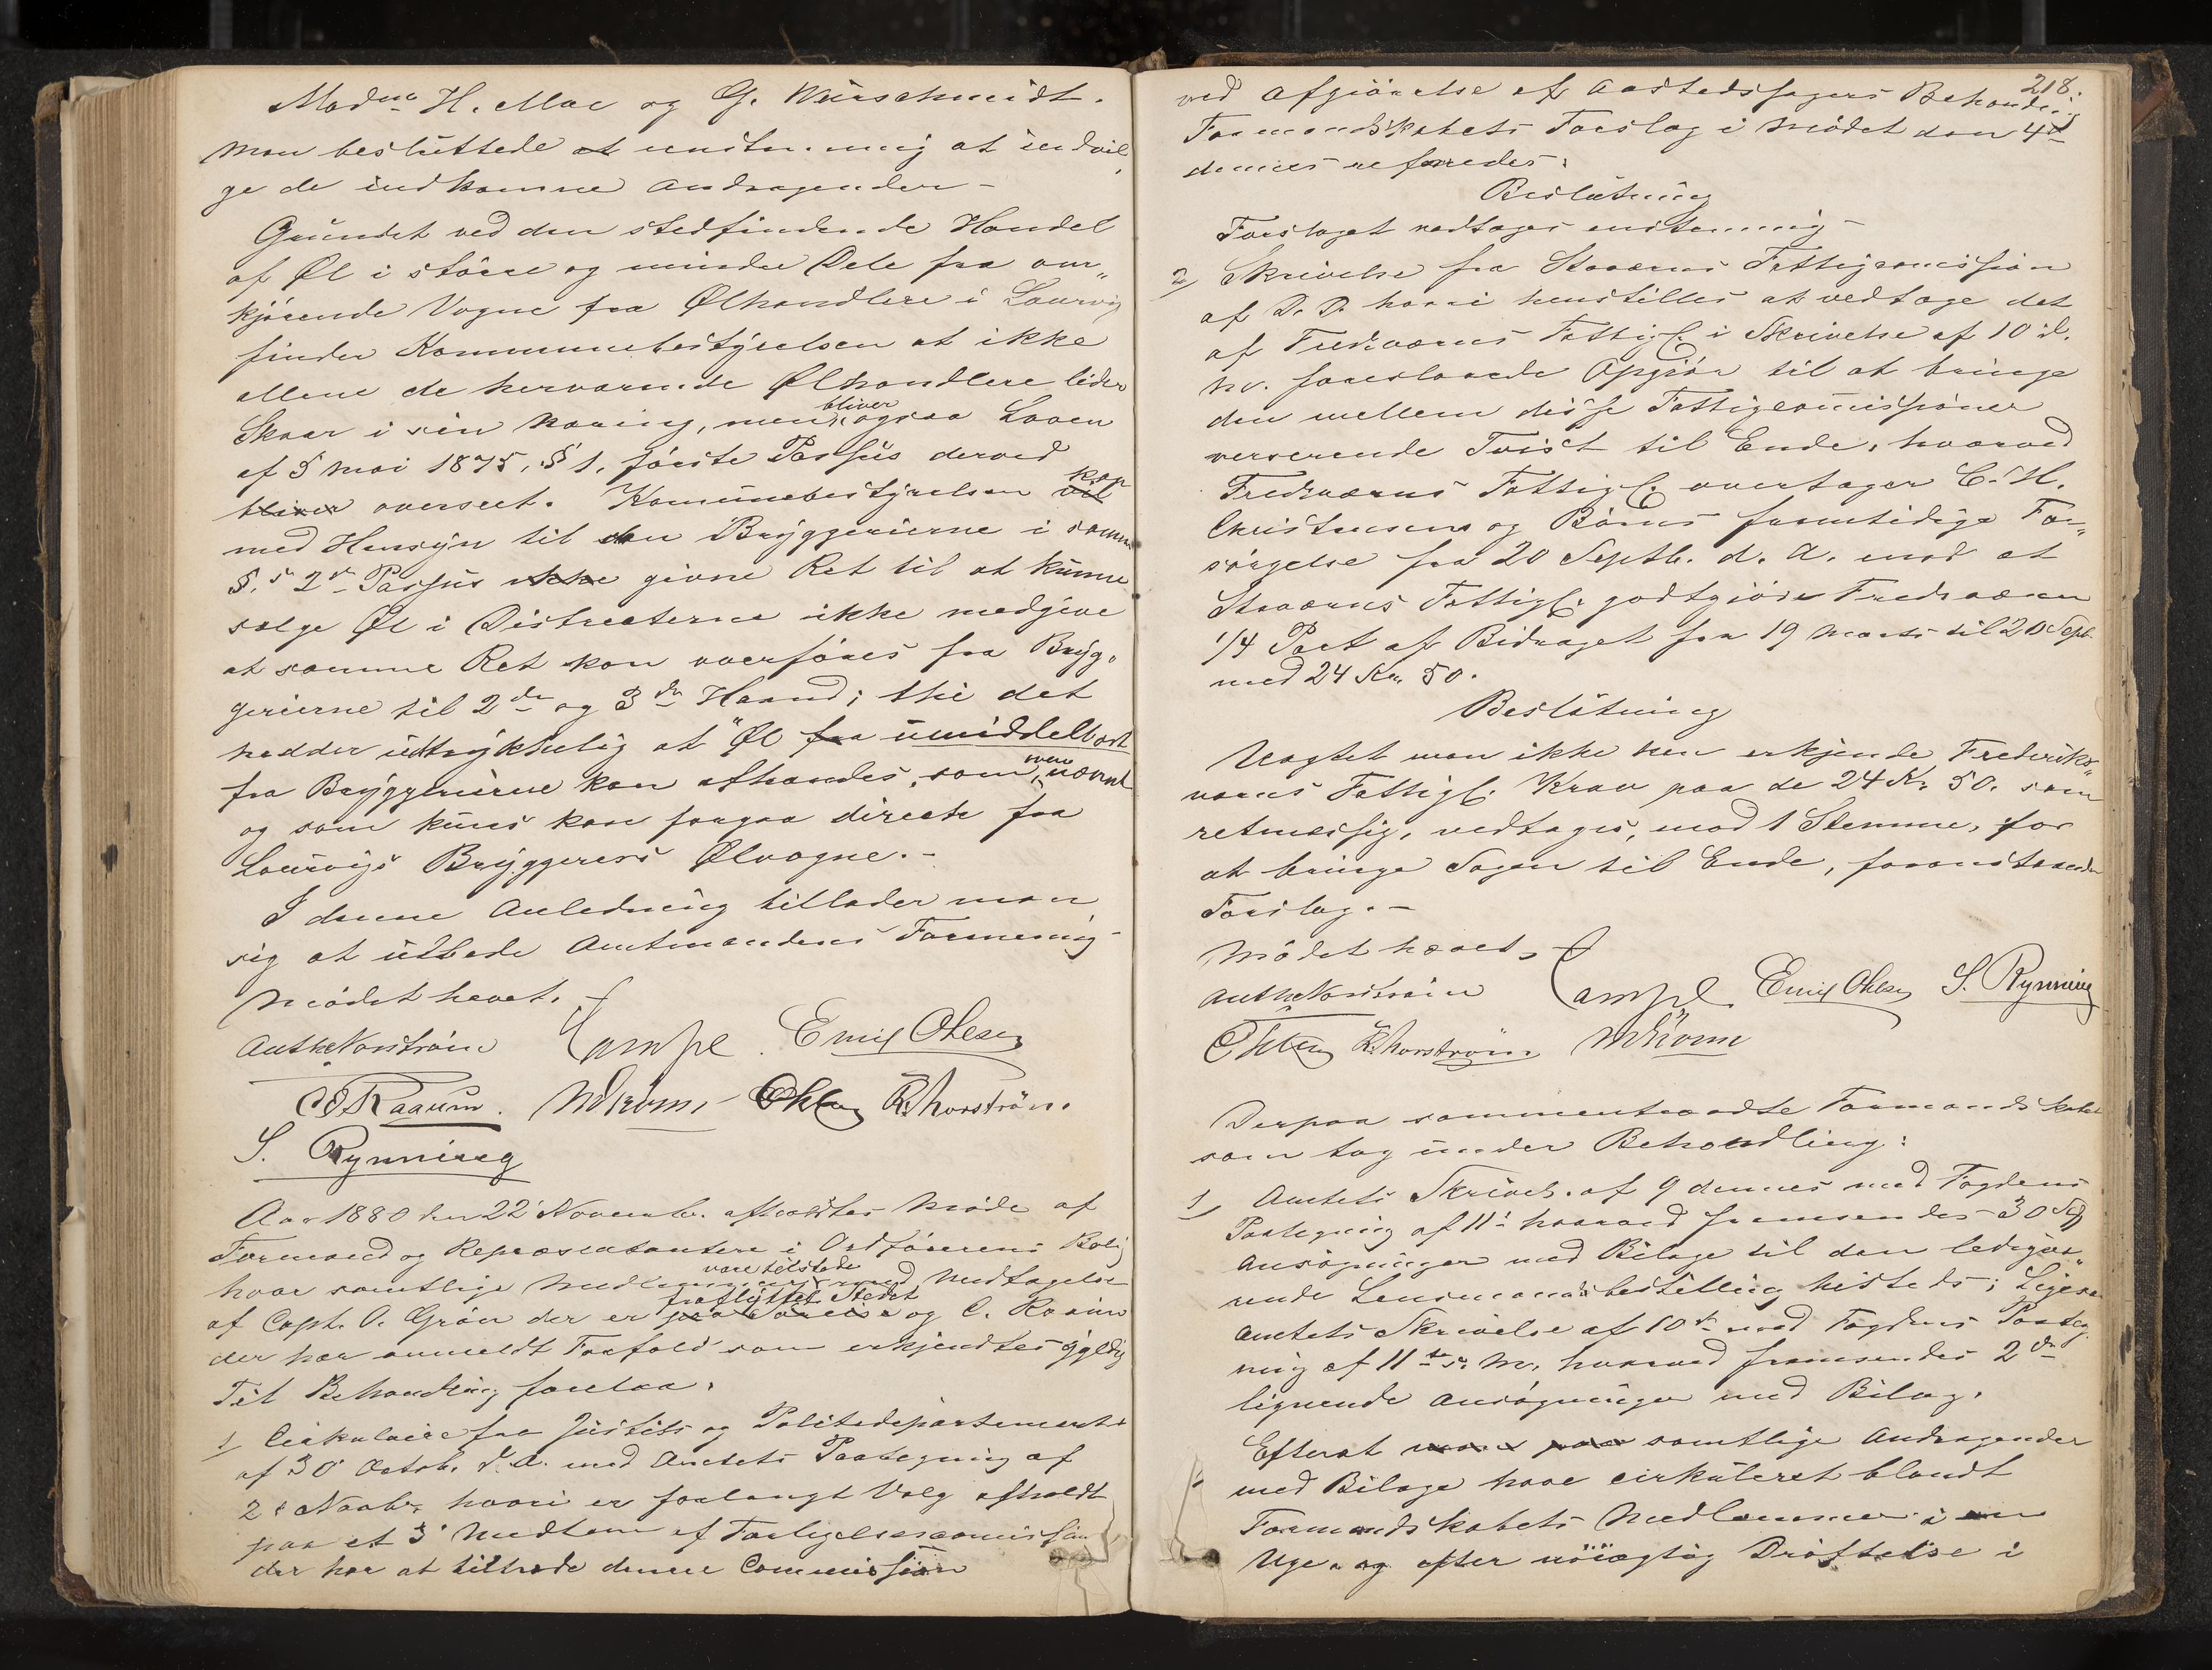 Mad<sup>me</sup> H. Moe og G. Würschmidt.
Man besluttede at enstemmig at indvil,
ge de indkomne Andragender –
Grundet ved den stedfindende Handel
af Øl i større og mindre Dele fra om„
kjørende Vogne fra Ølhandlere i Laurvig
finder Kommunebestyrelsen at ikke
allene de herværende Ølhandlere lider
Skaar i sin Næring, men bliver ogsaa Loven
af 5 Mai 1875, § 1, første Passus derved
bliver overseet. Komunebestyrelsen vil kan
med Hensyn til den Bryggerierne i samme
§.s 2den Passus ikke givne Ret til at kunne
sælge Øl i Districterne ikke medgive
at samme Ret kan overføres fra Bryg„
gerierne til 2den og 3die Haand; thi det
hedder udtrykkelig at "Øl fra umiddelbart
fra Bryggerierne kan afhændes, som nævnt
og som kuns kan foregaa directe fra
Laurvigs Bryggeriers Ølvogne. –
I denne Anledning tillader man
sig at udbede Amtmandens Formening –
Mødet hævet.
Anth Norström Campe. Emil Olsen
C. Raaum. Ohlsen R. Thorström.
S. Rynning
Aar 1880 den 22 Novembr. afholdtes Møde af
Formænd og Repræsentantere i Ordførerens Bolig
hvor samtlige Medlemmer vare tilstede med Undtagelse
af Capt. O. Grøn der er paa Søreise fraflyttet Stedet og C. Raaum
der har anmeldt Forfald som erkjendtes gyldig
Til Behandling forelaa:
1/ Cirkulaire fra Justits og Politidepartementet
af 30 Octob. d. A. med Amtets Paategning af
2d Novbr. hvori er forlangt Valg afholdt
paa et 3d Medlem af Forligelsescommission
der har at tiltræde denne Commission
218.
ved Afgjørelse af Aastedssagers Behandling
Formandskabets Forslag i Mødet den 4d
dennes refereredes:
Beslutning
Forslaget vedtages enstemmig –
2/ Skrivelse fra Staværns Fattigcomission
af D. D. hvori henstilles at vedtage det
af Fredriksværns Fattigc. i Skrivelse af 10 d.
m. foreslaaede Opgjør til at bringe
den mellem disse Fattigcomissioner
verserende Tvist til Ende, hvorved
Fredrværns Fattigc. overtager C. H.
Christensens og Børns fremtidige For„
sørgelse fra 20 Septb. d. A. mod at
Staværns Fattigc. godtgjøre Fredrværn
1/4 Part af Bidraget fra 19 Marts til 20 Sept.
med 24 Kr. 50.
Beslutning
Uagtet man ikke kan erkjende Frederiks„
værns Fattigc. Krav paa de 24 Kr. 50. som
retmæssig, vedtages, mod 1 Stemme, for
at bringe Sagen til Ende, foranstaaende
Forslag. –
Mødet hævet,
Anth Norström Campe Emil Olsen S. Rynning
Ohlsen R. Thorström
Derpaa sammentraadte Formandskabet
som tog under Behandling:
1/ Amtets Skrivels. af 9 dennes med Fogdens
Paategning af 11d hvorved fremsendes 30
Ansøgninger med Bilage til den ledigvæ„
rende Lensmandsbestilling histeds; Ligesaa
Amtets Skrivelse af 10de med Fogdens Paateg
ning af 11te s. M. hvorved fremsendes 2de
lignende Ansøgninger med Bilag.
Efterat samtlige Andragender
med Bilage have cirkuleret blandt
Formandskabets Medlemmer i en
Uge og efter nøiagtig Drøftelse i